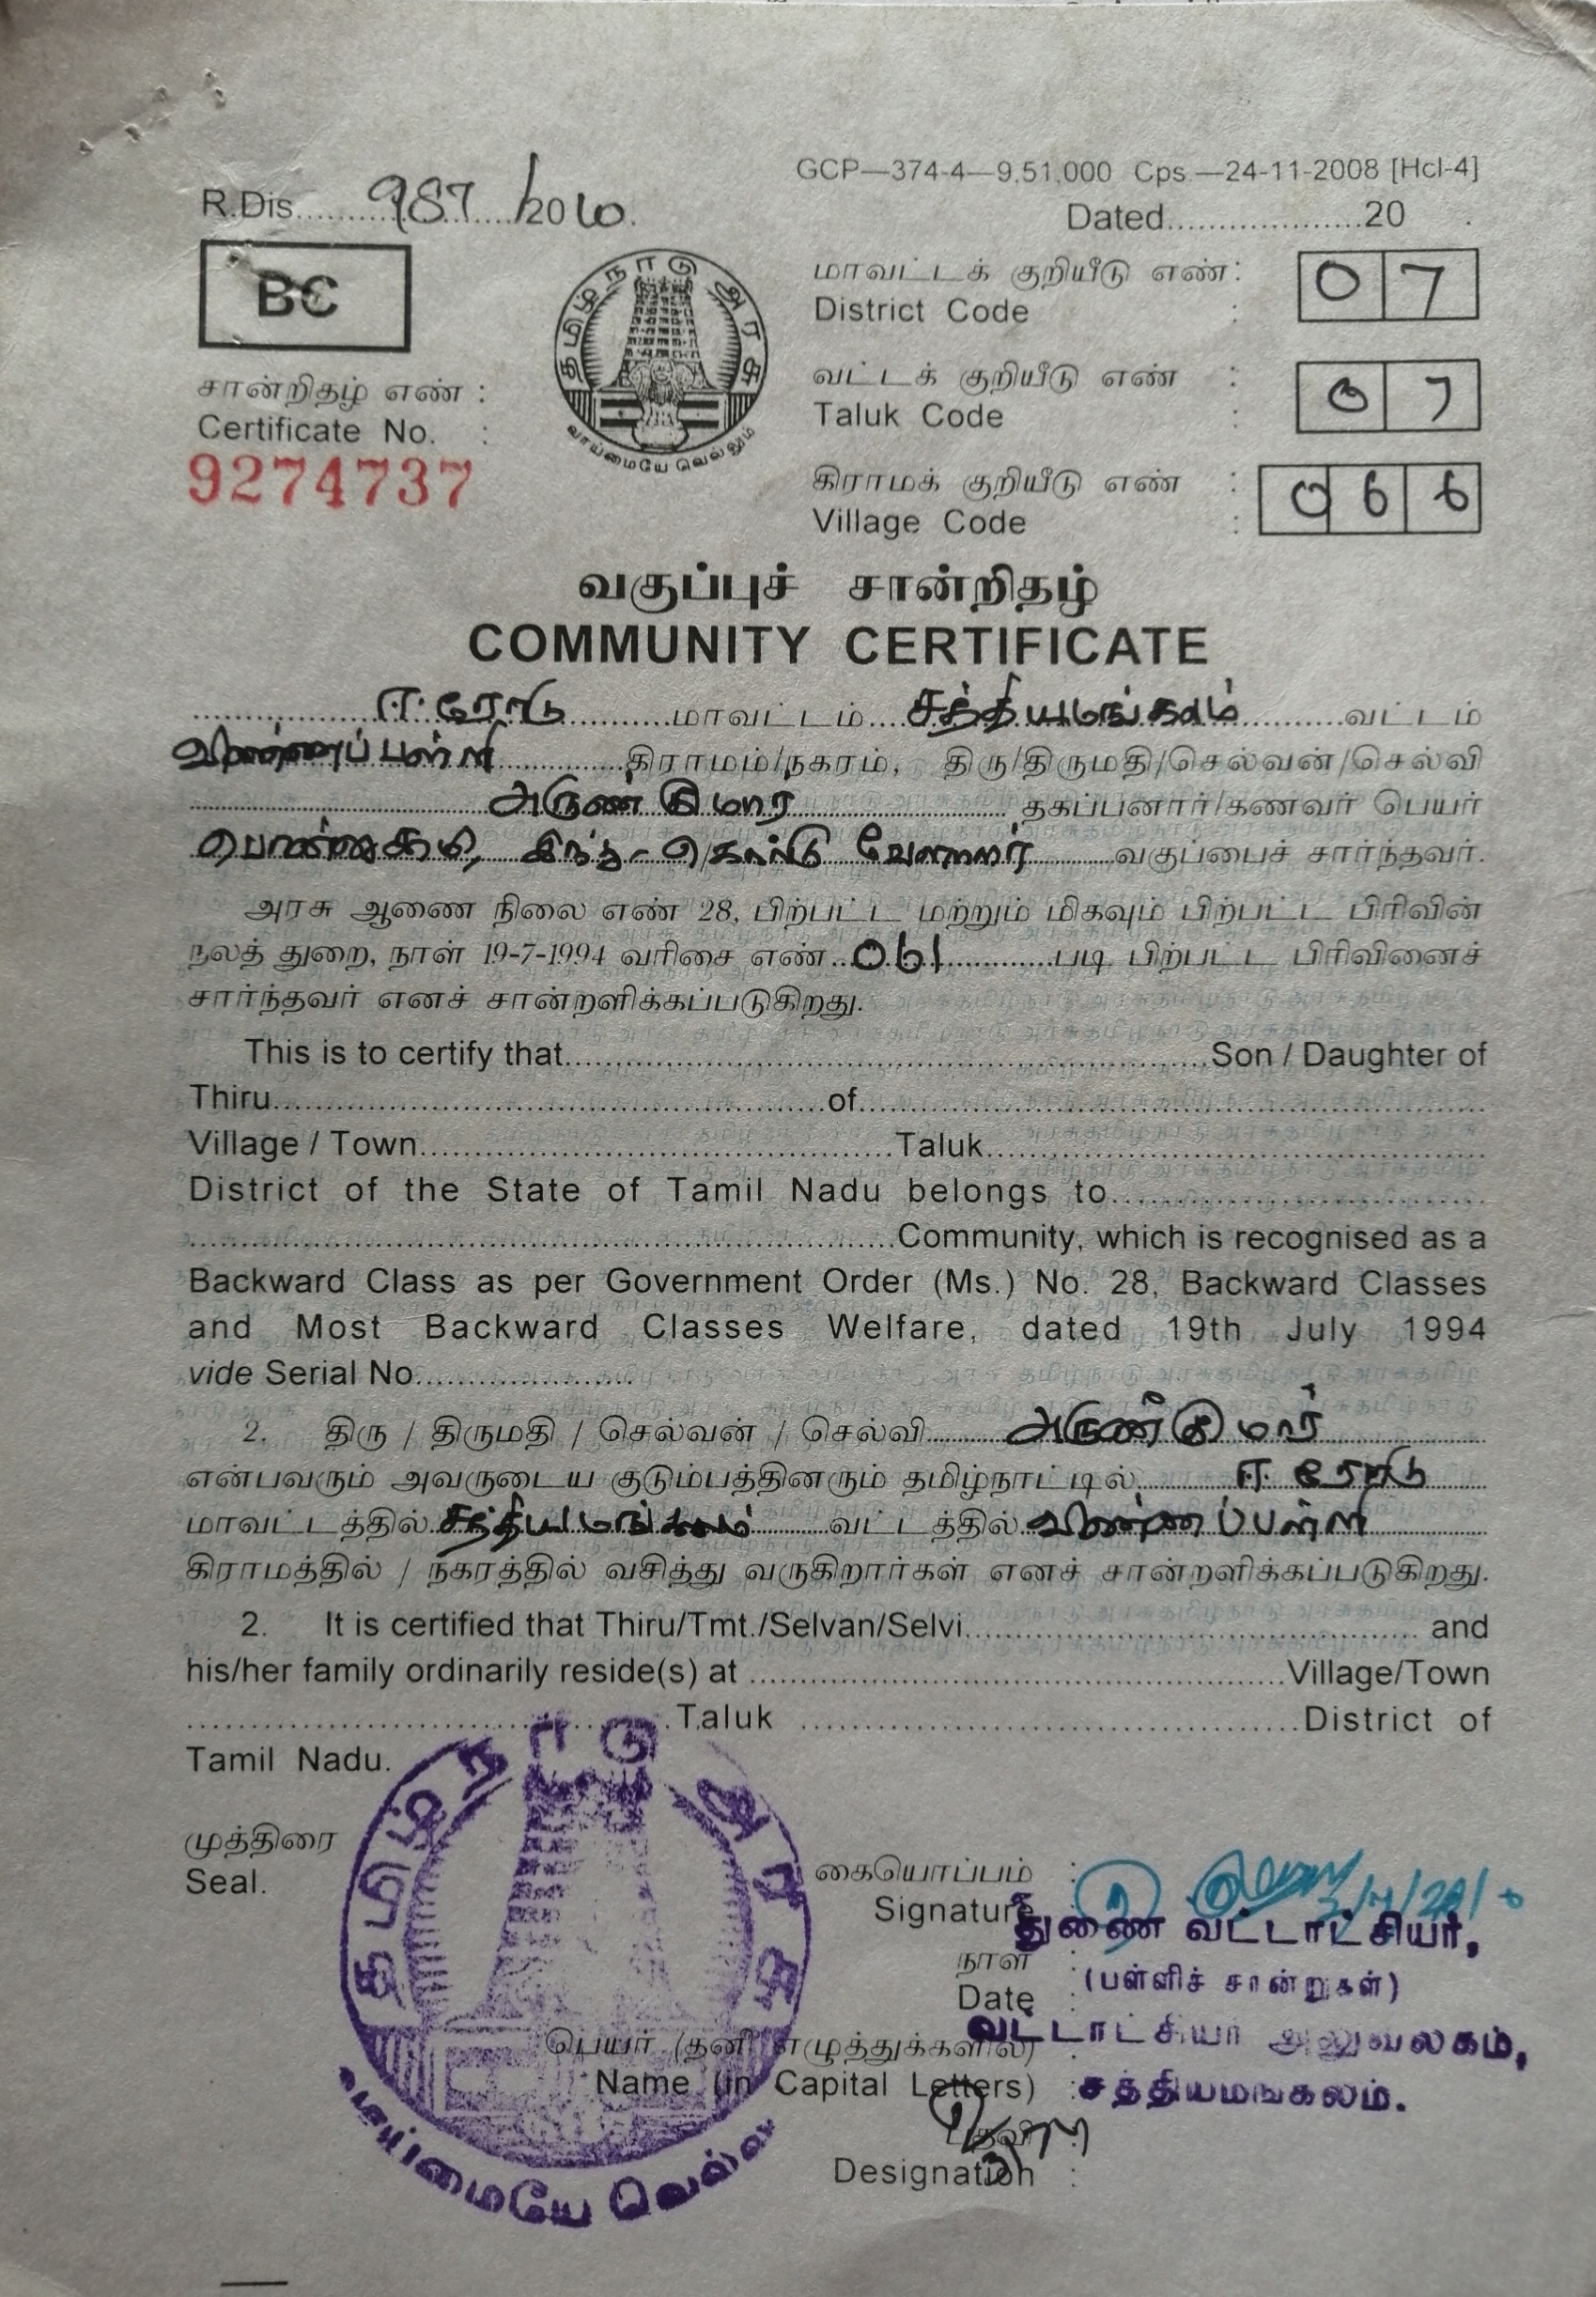 GCP—374-4—9,51,000 Cps.—24-11-2008 [Hcl-4]
R.Dis.......987....../2010.
Dated....................20 .
BC
தமிழ்நாடு அரசு
வாய்மையே வெல்லும்
மாவட்டக் குறியீடு எண் :
District Code : 0 7
வட்டக் குறியீடு எண் :
Taluk Code : 0 7
கிராமக் குறியீடு எண் :
Village Code : 0 6 6
சான்றிதழ் எண் :
Certificate No. :
9274737
வகுப்புச் சான்றிதழ்
COMMUNITY CERTIFICATE
ஈரோடு மாவட்டம் சத்தியமங்கலம் வட்டம்
விண்ணப்பள்ளி கிராமம்/நகரம், திரு/திருமதி/செல்வன்/செல்வி
அருண்குமார் தகப்பனார்/கணவர் பெயர்
இந்து - கொங்கு வேளாளர் வகுப்பைச் சார்ந்தவர்.
அரசு ஆணை நிலை எண் 28, பிற்பட்ட மற்றும் மிகவும் பிற்பட்ட பிரிவின்
நலத் துறை, நாள் 19-7-1994 வரிசை எண் 061 படி பிற்பட்ட பிரிவினைச்
சார்ந்தவர் எனச் சான்றளிக்கப்படுகிறது.
This is to certify that..........Son / Daughter of
Thiru..........of..........
Village / Town..........Taluk..........
District of the State of Tamil Nadu belongs to..........
..........Community, which is recognised as a
Backward Class as per Government Order (Ms.) No. 28, Backward Classes
and Most Backward Classes Welfare, dated 19th July 1994
vide Serial No..........
2. திரு / திருமதி / செல்வன் / செல்வி அருண்குமார்
என்பவரும் அவருடைய குடும்பத்தினரும் தமிழ்நாட்டில் ஈரோடு
மாவட்டத்தில் சத்தியமங்கலம் வட்டத்தில் விண்ணப்பள்ளி
கிராமத்தில் / நகரத்தில் வசித்து வருகிறார்கள் எனச் சான்றளிக்கப்படுகிறது.
2. It is certified that Thiru/Tmt./Selvan/Selvi.......... and
his/her family ordinarily reside(s) at ..........Village/Town
..........Taluk ..........District of
Tamil Nadu.
தமிழ்நாடு அரசு
வாய்மையே வெல்லும்
முத்திரை
Seal.
கையொப்பம் :
Signature
துணை வட்டாட்சியர்,
நாள் :
(பள்ளிச் சான்றுகள்)
Date :
வட்டாட்சியர் அலுவலகம்,
பெயர் (தனி எழுத்துக்களில்) :
Name (in Capital Letters) : சத்தியமங்கலம்.
பதவி :
Designation :